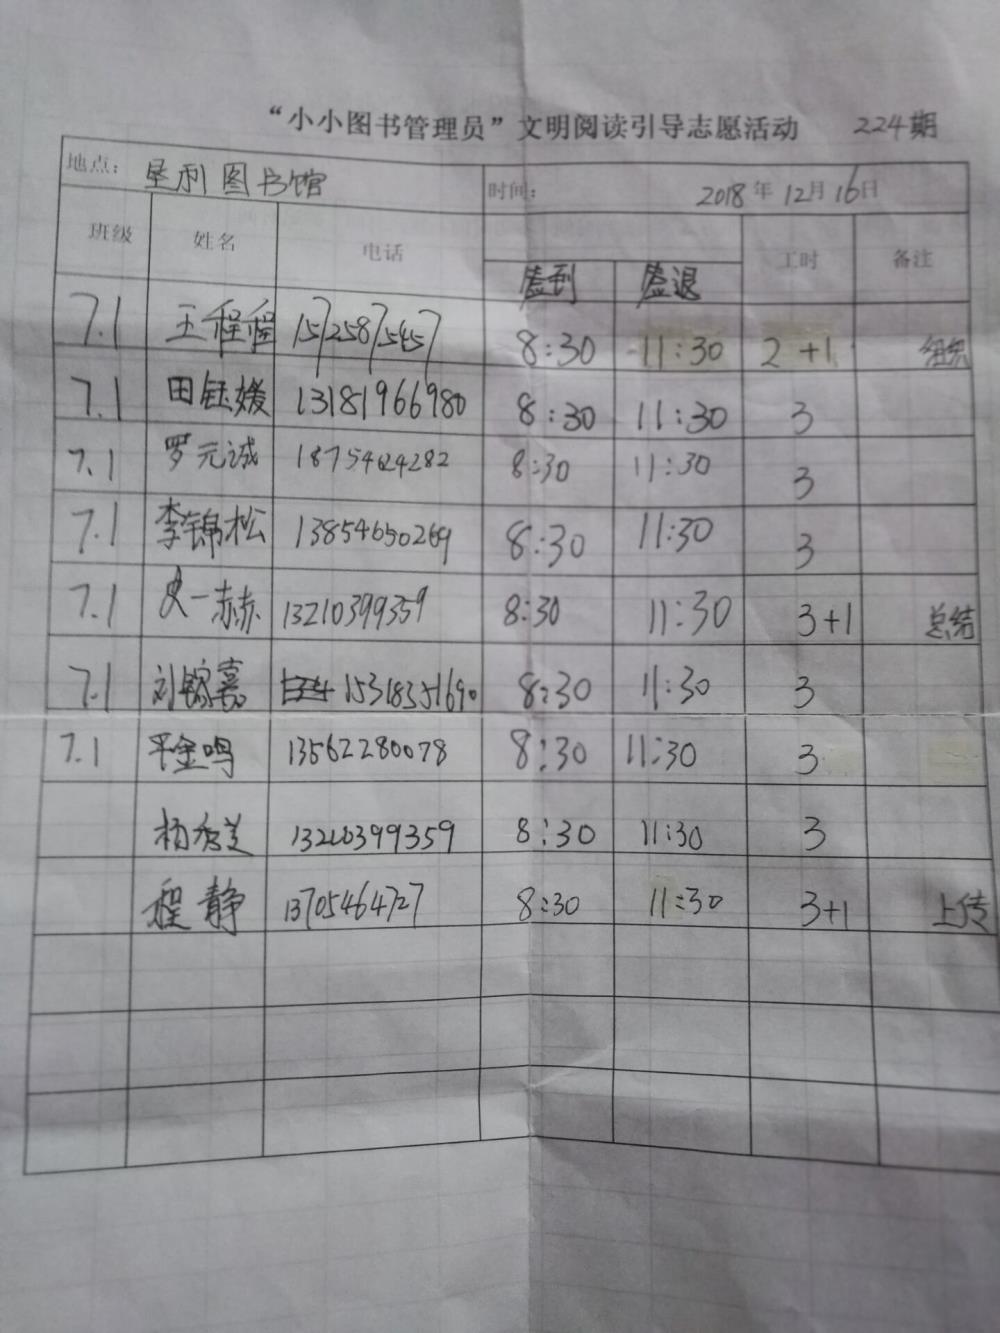 “小小图书管理员”文明阅读引导志愿活动 224期
地点: 垦利图书馆 时间: 2018年12月16日
班级 姓名 电话 签到 签退 工时 备注
7.1 王程程 15725875457 8:30 11:30 2+1 组织
7.1 田钰媛 13181966980 8:30 11:30 3
7.1 罗元诚 18754624282 8:30 11:30 3
7.1 李锦松 13854650269 8:30 11:30 3
7.1 史一赫 13210399359 8:30 11:30 3+1 总结
7.1 刘锦嘉 15318351690 8:30 11:30 3
7.1 平金鸣 13562280078 8:30 11:30 3
杨秀芝 13210399359 8:30 11:30 3
程静 13705464727 8:30 11:30 3+1 上传